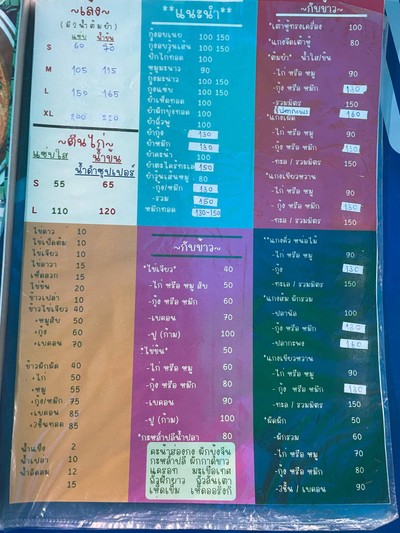 ~เล้ง~
(มีวน้ำต้มยำ)
แซ่บ น้ำข้น
S 60 70
M 105 115
L 150 165
XL 200 220
~ตีนไก่~
แซ่บใส น้ำข้น
น้ำดำซุปเปอร์
S 55 65
L 110 120
**แนะนำ**
กุ้งอบเนย 100 150
กุ้งอบวุ้นเส้น 100 150
ปีกไก่ทอด 100
หมูมะนาว 90
กุ้งมะนาว 100 150
กุ้งแซ่บ 100 150
ยำเห็ดทอด 100
ยำผักบุ้งทอด 100
ยำถั่วพู 100
ยำกุ้ง 130
ยำหมึก 130
ยำคะน้า 100
ยำตะไคร้ทะเล 150
ยำวุ้นเส้นหมู 80
-กุ้ง/หมึก 130
-รวม 150
หมึกทอด 130-150
~กับข้าว~
*เต้าหู้ทรงเครื่อง 100
*แกงจืดเต้าหู้ 80
*ต้มยำ* น้ำใส/ข้น
-ไก่ หรือ หมู 90
-กุ้ง หรือ หมึก 130
-รวมมิตร 150
ปลากะพง 160
*แกงเผ็ด
-ไก่ หรือ หมู 90
-กุ้ง หรือ หมึก 130
-ทะเล / รวมมิตร 150
*แกงเขียวหวาน
-ไก่ หรือ หมู 90
-กุ้ง หรือ หมึก 130
-ทะเล / รวมมิตร 150
ไข่ดาว 10
ไข่เป็ดต้ม 10
ไข่เจียว 10
15
เห็ดลวก 15
ไข่ข้น 20
ข้าวเปล่า 10
ข้าวไข่เจียว 40
•หมูสับ 50
•กุ้ง 60
•เบคอน 70
ข้าวผัก 40
•ไก่ 50
•หมู 55
•กุ้ง/หมึก 75
•เบคอน 85
•ชั้นทอด 85
น้ำแข็ง 2
น้ำเปล่า 10
น้ำอัดลม 12
15
~กับข้าว~
*ไข่เจียว* 40
-ไก่ หรือ หมู สับ 50
-กุ้ง หรือ หมึก 60
-เบคอน 70
-ปู (ก้าม) 100
*ไข่ข้น* 50
-ไก่ หรือ หมู 60
-กุ้ง หรือ หมึก 80
-เบคอน 90
-ปู (ก้าม) 100
*กะหล่ำปลีน้ำปลา 80
คะน้าฮ่องกง ผักบุ้งจีน
กะหล่ำปลี ผักกาดขาว
แครอท มะเขือเทศ
ถั่วฝักยาว ถั่วลันเตา
เห็ดเข็ม เห็ดออรินจิ
*แกงคั่ว หน่อไม้
-ไก่ หรือ หมู 90
-กุ้ง 130
-ทะเล / รวมมิตร 150
*แกงส้ม ผักรวม
-ปลานิล 100
-กุ้ง หรือ หมึก 130
-ปลากะพง 160
*แกงเขียวหวาน
-ไก่ หรือ หมู 90
-กุ้ง หรือ หมึก 130
-ทะเล / รวมมิตร 150
*ผัดผัก 50
-ผักรวม 60
-ไก่ หรือ หมู 70
-กุ้ง หรือ หมึก 80
-3ชั้น / เบคอน 90